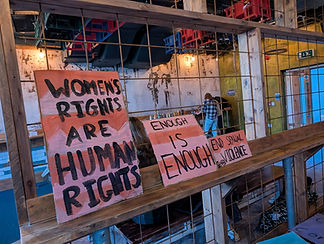 WOMENS
RIGHTS
ARE
HUMAN
RIGHTS
ENOUGH
IS
ENOUGH
END SEXUAL
VIOLENCE